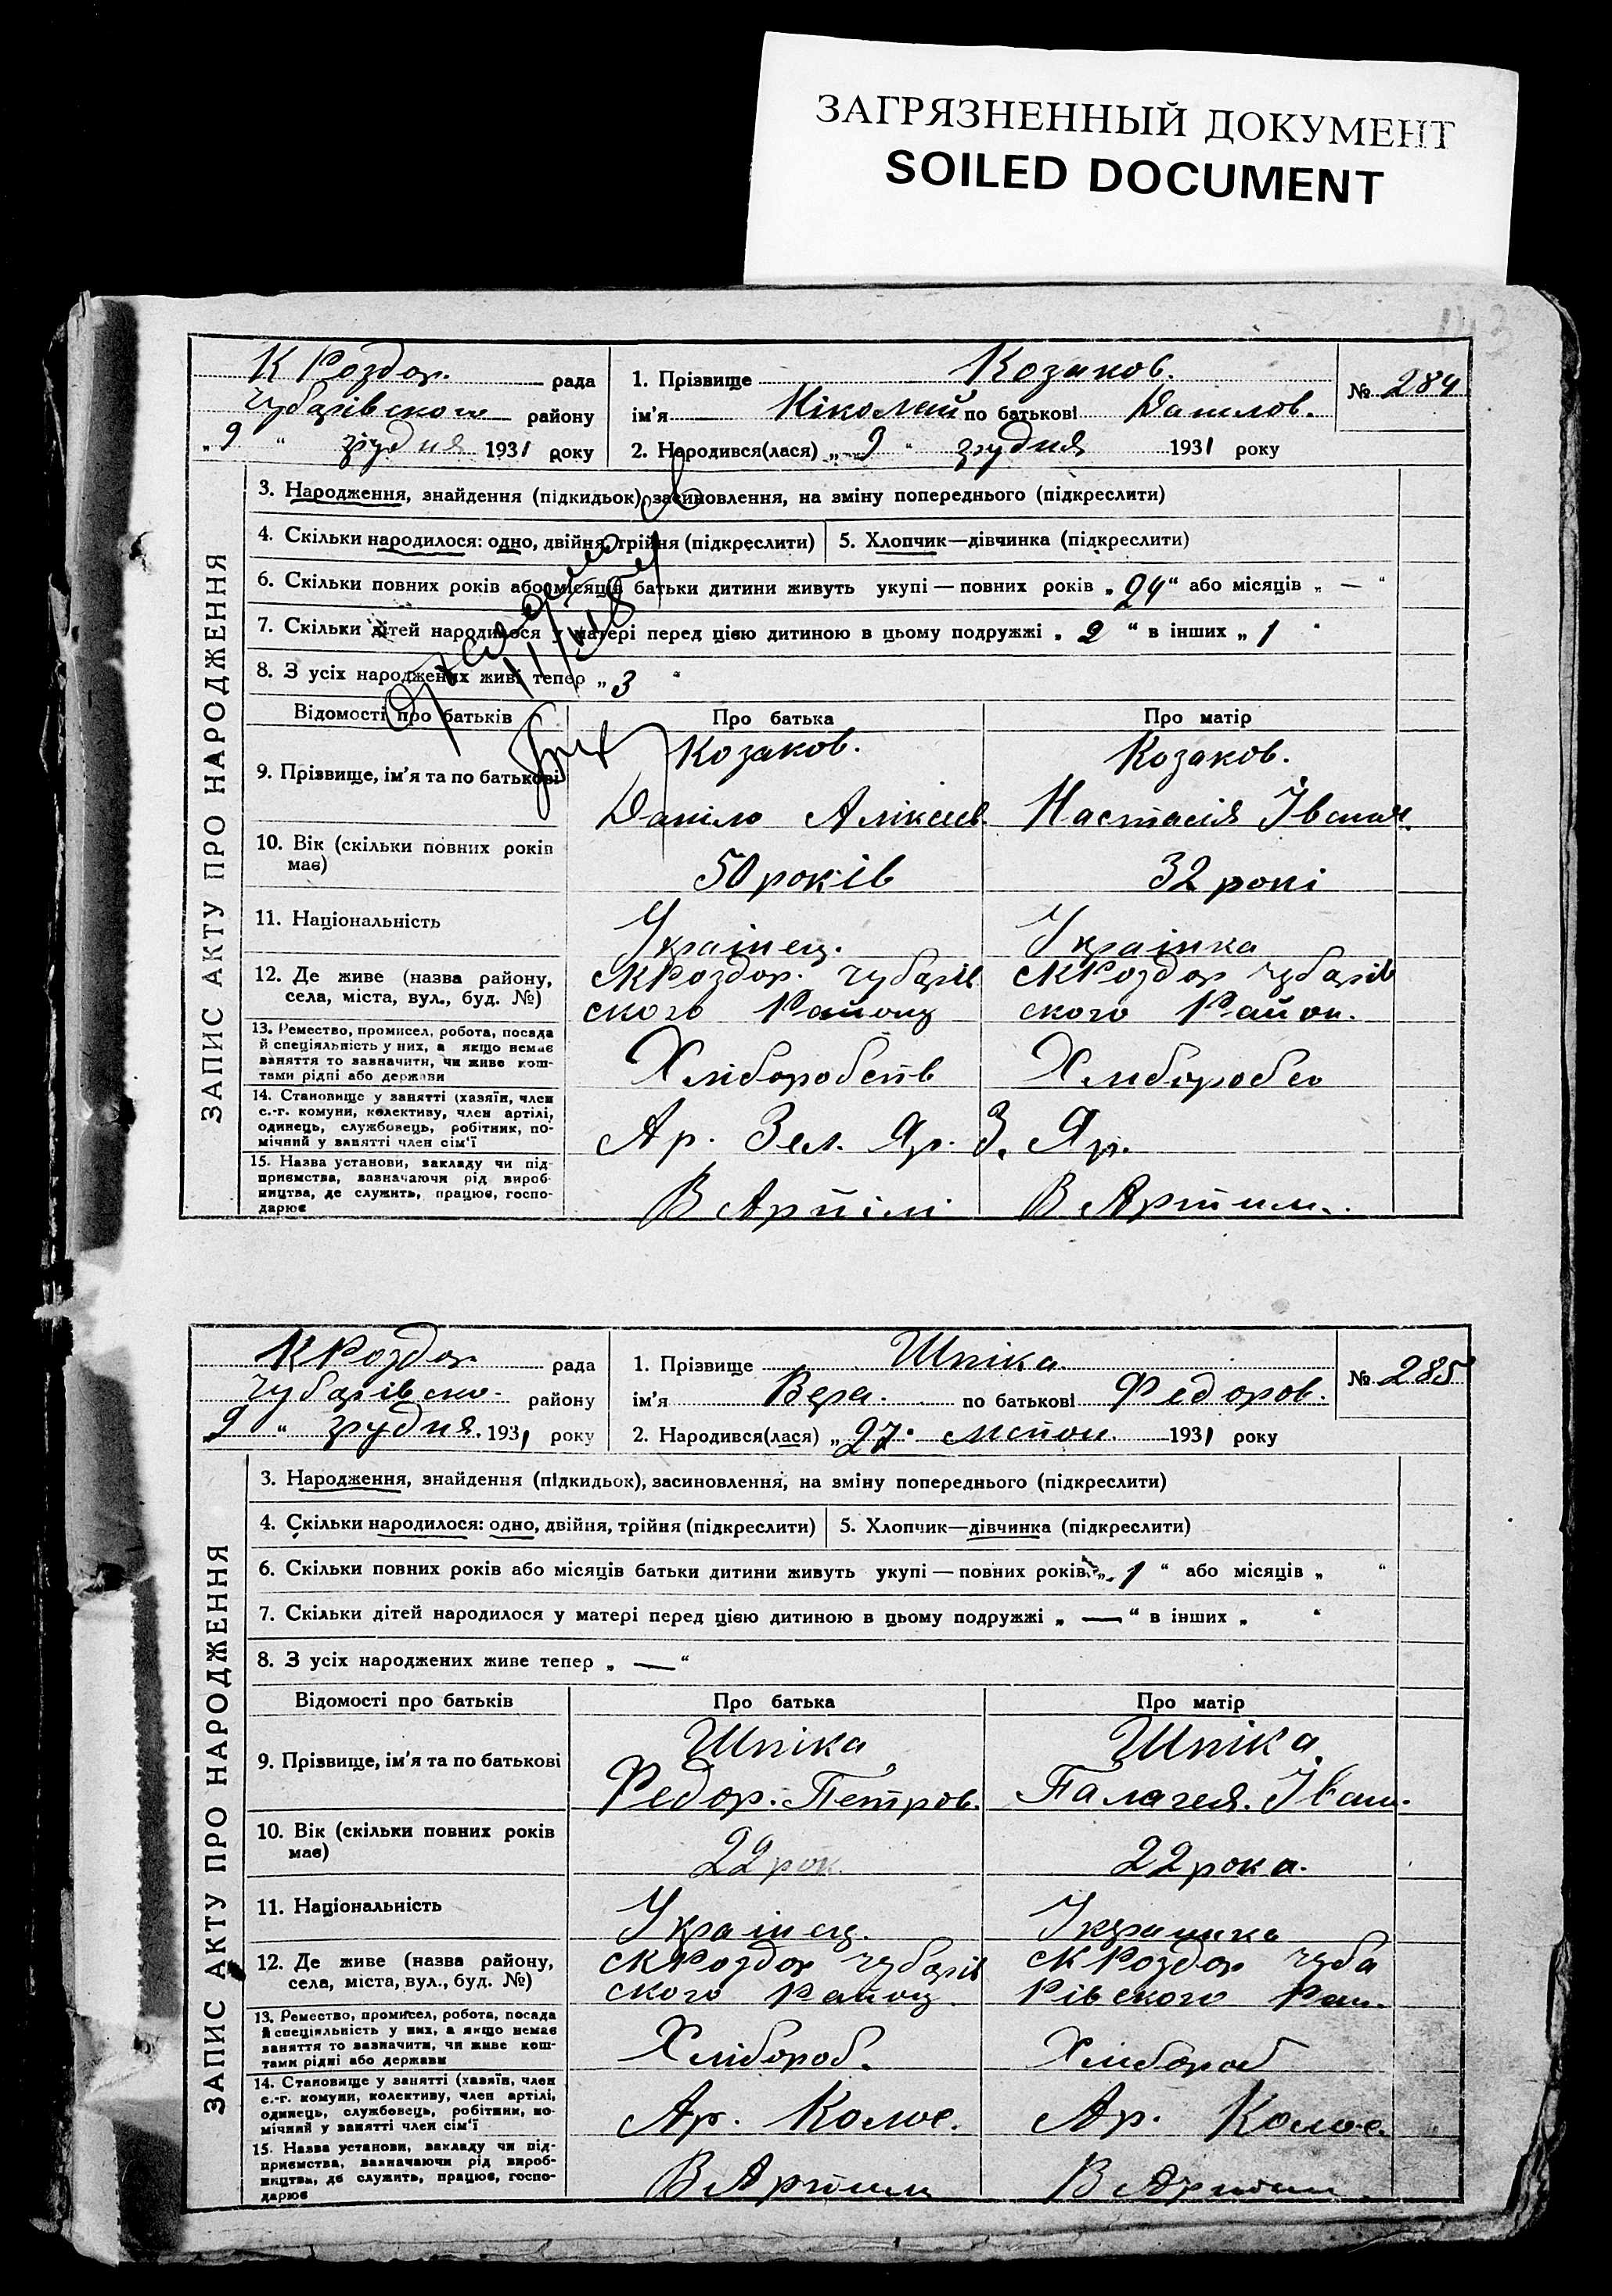 ЗАГРЯЗНЕННЫЙ ДОКУМЕНТ
SOILED DOCUMENT
К Роздор. рада
Чубарівського району
„9“ грудня 1931 року
1. Прізвище Козаков.
ім'я Ніколай по батькові Данилов.
2. Народився(лася) „9“ грудня 1931 року
№ 284
ЗАПИС АКТУ ПРО НАРОДЖЕННЯ
3. Народження, знайдення (підкидьок), засиновлення, на зміну попереднього (підкреслити)
4. Скільки народилося: одно, двійня, трійня (підкреслити)
5. Хлопчик—дівчинка (підкреслити)
6. Скільки повних років або місяців батьки дитини живуть укупі — повних років „24“ або місяців „—“
7. Скільки дітей народилося у матері перед цією дитиною в цьому подружжі „2“ в інших „1“
8. З усіх народжених живі тепер „3“
Відомості про батьків
Про батька
Про матір
9. Прізвище, ім'я та по батькові
Козаков.
Даніло Аліксеєв.
Козаков.
Настасія Іван.
10. Вік (скільки повних років має)
50 років
32 рокі
11. Національність
Украінец.
Украінка
12. Де живе (назва району,
села, міста, вул., буд. №)
с К Роздор. Чубарів
ского Району
с К Роздор Чубарів
ского Район.
13. Ремество, промисел, робота, посада
й спеціяльність у них, а якщо немає
заняття то зазначити, чи живе кош-
тами рідні або держави
Хліборобств
Хлібороб
14. Становище у занятті (хазяїн, член
с.-г. комуни, колективу, член артілі,
одинець, службовець, робітник, по-
мічний у занятті член сім'ї
Ар. Зел. Яр.
З. Яр.
15. Назва установи, закладу чи під-
приємства, зазначаючи рід вироб-
ництва, де служить, працює, госпо-
дарює
В Артілі
В Артил.
К Роздор рада
Чубарівско. району
„9“ грудня. 1931 року
1. Прізвище Шпіка
ім'я Вера. по батькові Федоров.
2. Народився(лася) „27“ листоп. 1931 року
№ 285
ЗАПИС АКТУ ПРО НАРОДЖЕННЯ
3. Народження, знайдення (підкидьок), засиновлення, на зміну попереднього (підкреслити)
4. Скільки народилося: одно, двійня, трійня (підкреслити)
5. Хлопчик—дівчинка (підкреслити)
6. Скільки повних років або місяців батьки дитини живуть укупі — повних років „1“ або місяців „ “
7. Скільки дітей народилося у матері перед цією дитиною в цьому подружжі „—“ в інших „ “
8. З усіх народжених живе тепер „—“
Відомості про батьків
Про батька
Про матір
9. Прізвище, ім'я та по батькові
Шпіка
Федор. Петров.
Шпіка
Палагея. Іван.
10. Вік (скільки повних років має)
22 рок.
22 рока.
11. Національність
Украінец.
Украинка
12. Де живе (назва району,
села, міста, вул., буд. №)
с К Роздор Чубарів
ского Району
с К Роздор Чуба
рівского Рай.
13. Ремество, промисел, робота, посада
й спеціяльність у них, а якщо немає
заняття то зазначити, чи живе кош-
тами рідні або держави
Хлібороб.
Хлібороб
14. Становище у занятті (хазяїн, член
с.-г. комуни, колективу, член артілі,
одинець, службовець, робітник, по-
мічний у занятті член сім'ї
Ар. Колос.
Ар. Колос.
15. Назва установи, закладу чи під-
приємства, зазначаючи рід вироб-
ництва, де служить, працює, госпо-
дарює
В Артили
В Артили